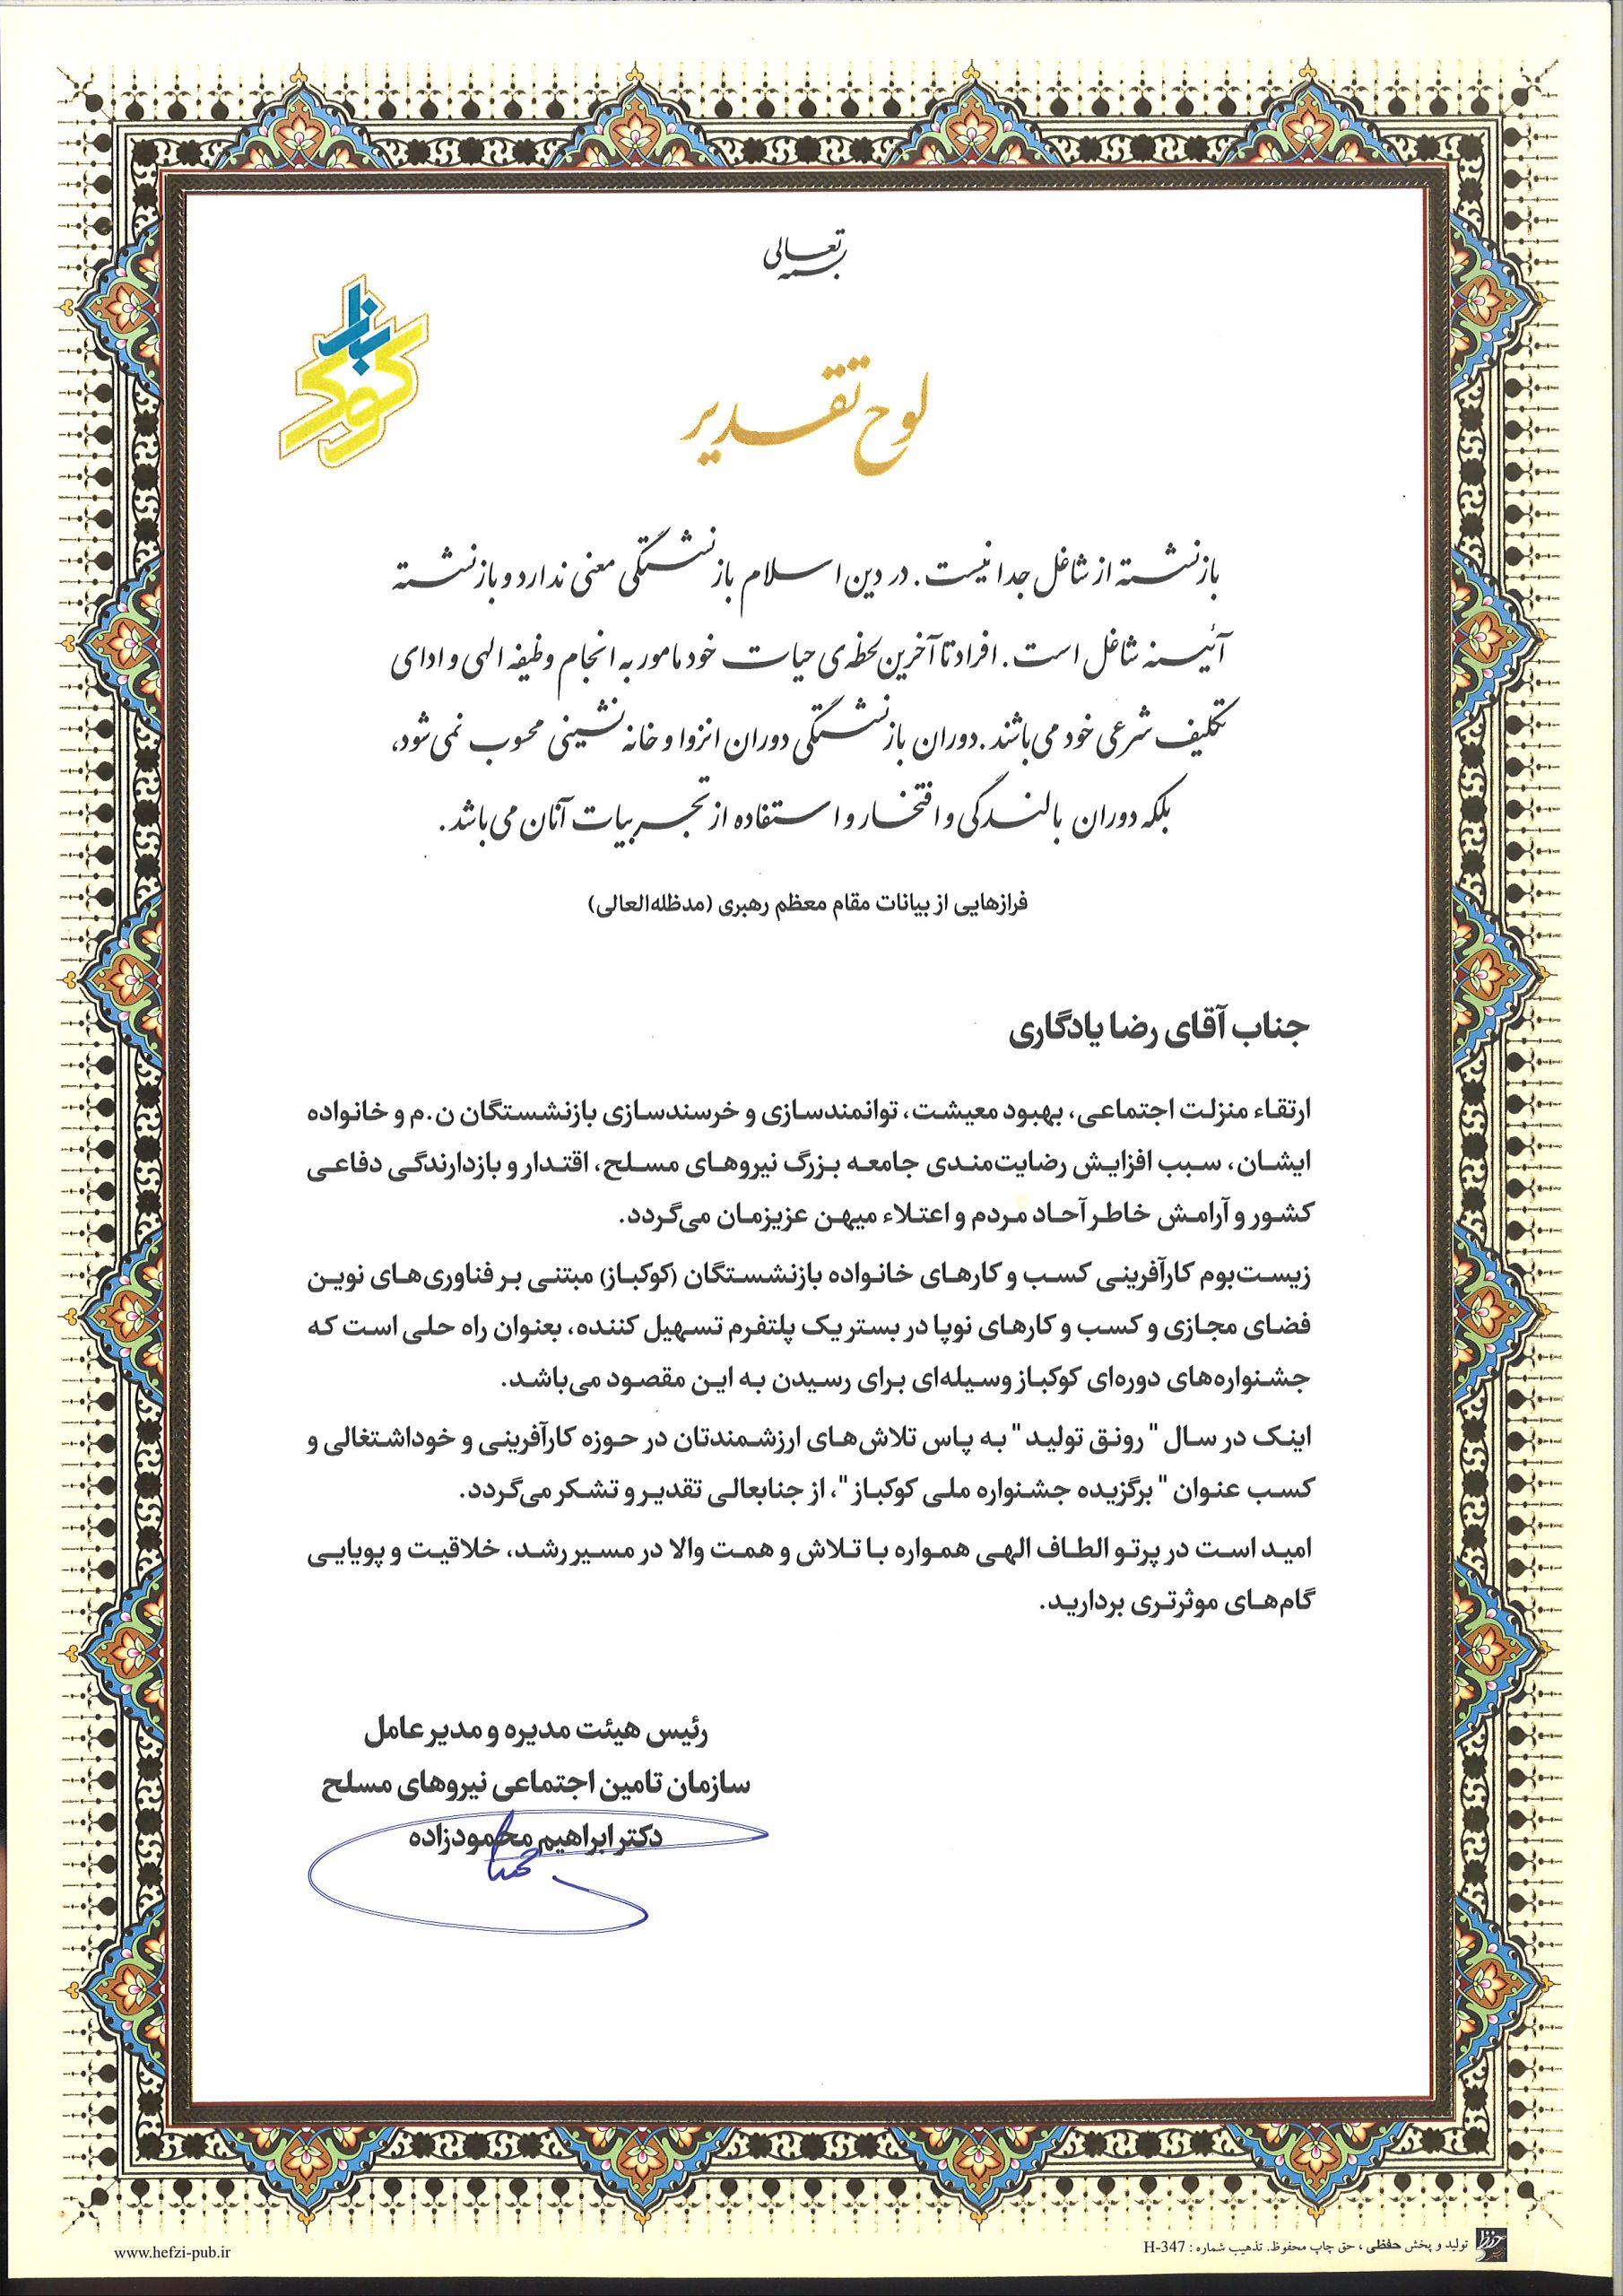 بسمه تعالی
کوکباز
لوح تقدیر
بازنشسته از شاغل جدا نیست. در دین اسلام بازنشستگی معنی ندارد و بازنشسته
آئینه شاغل است. افراد تا آخرین لحظه‌ی حیات خود مامور به انجام وظیفه الهی و ادای
تکلیف شرعی خود می‌باشند. دوران بازنشستگی دوران انزوا و خانه نشینی محسوب نمی‌شود،
بلکه دوران بالندگی و افتخار و استفاده از تجربیات آنان می‌باشد.
فرازهایی از بیانات مقام معظم رهبری (مدظله‌العالی)
جناب آقای رضا یادگاری
ارتقاء منزلت اجتماعی، بهبود معیشت، توانمندسازی و خرسندسازی بازنشستگان ن.م و خانواده
ایشان، سبب افزایش رضایت‌مندی جامعه بزرگ نیروهای مسلح، اقتدار و بازدارندگی دفاعی
کشور و آرامش خاطر آحاد مردم و اعتلاء میهن عزیزمان می‌گردد.
زیست‌بوم کارآفرینی کسب و کارهای خانواده بازنشستگان (کوکباز) مبتنی بر فناوری‌های نوین
فضای مجازی و کسب و کارهای نوپا در بستر یک پلتفرم تسهیل کننده، بعنوان راه حلی است که
جشنواره‌های دوره‌ای کوکباز وسیله‌ای برای رسیدن به این مقصود می‌باشد.
اینک در سال " رونق تولید " به پاس تلاش‌های ارزشمندتان در حوزه کارآفرینی و خوداشتغالی و
کسب عنوان " برگزیده جشنواره ملی کوکباز "، از جنابعالی تقدیر و تشکر می‌گردد.
امید است در پرتو الطاف الهی همواره با تلاش و همت والا در مسیر رشد، خلاقیت و پویایی
گام‌های موثرتری بردارید.
رئیس هیئت مدیره و مدیر عامل
سازمان تامین اجتماعی نیروهای مسلح
دکتر ابراهیم محمودزاده
تولید و پخش حفظی ، حق چاپ محفوظ. تذهیب شماره : H-347
www.hefzi-pub.ir